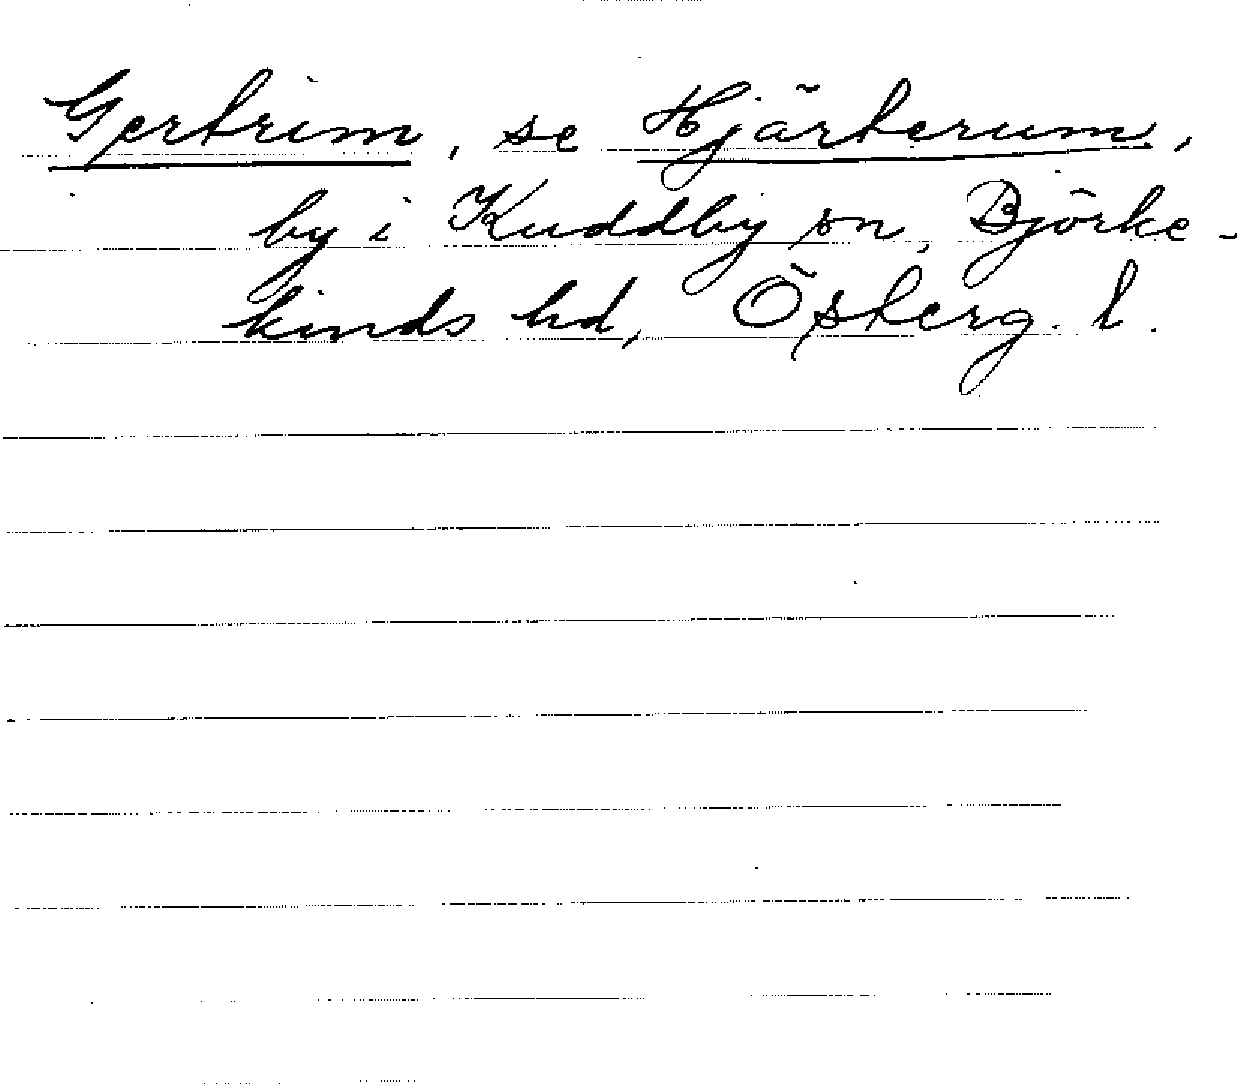 Gertrim, se Hjärterum,
by i Kuddby sn, Björke-
kinds hd, Österg. l.